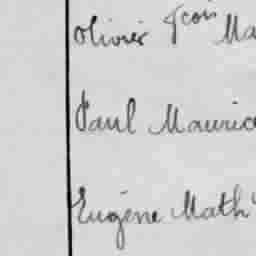 Olivier Fcois Ma
Paul Maurice
Eugène Math